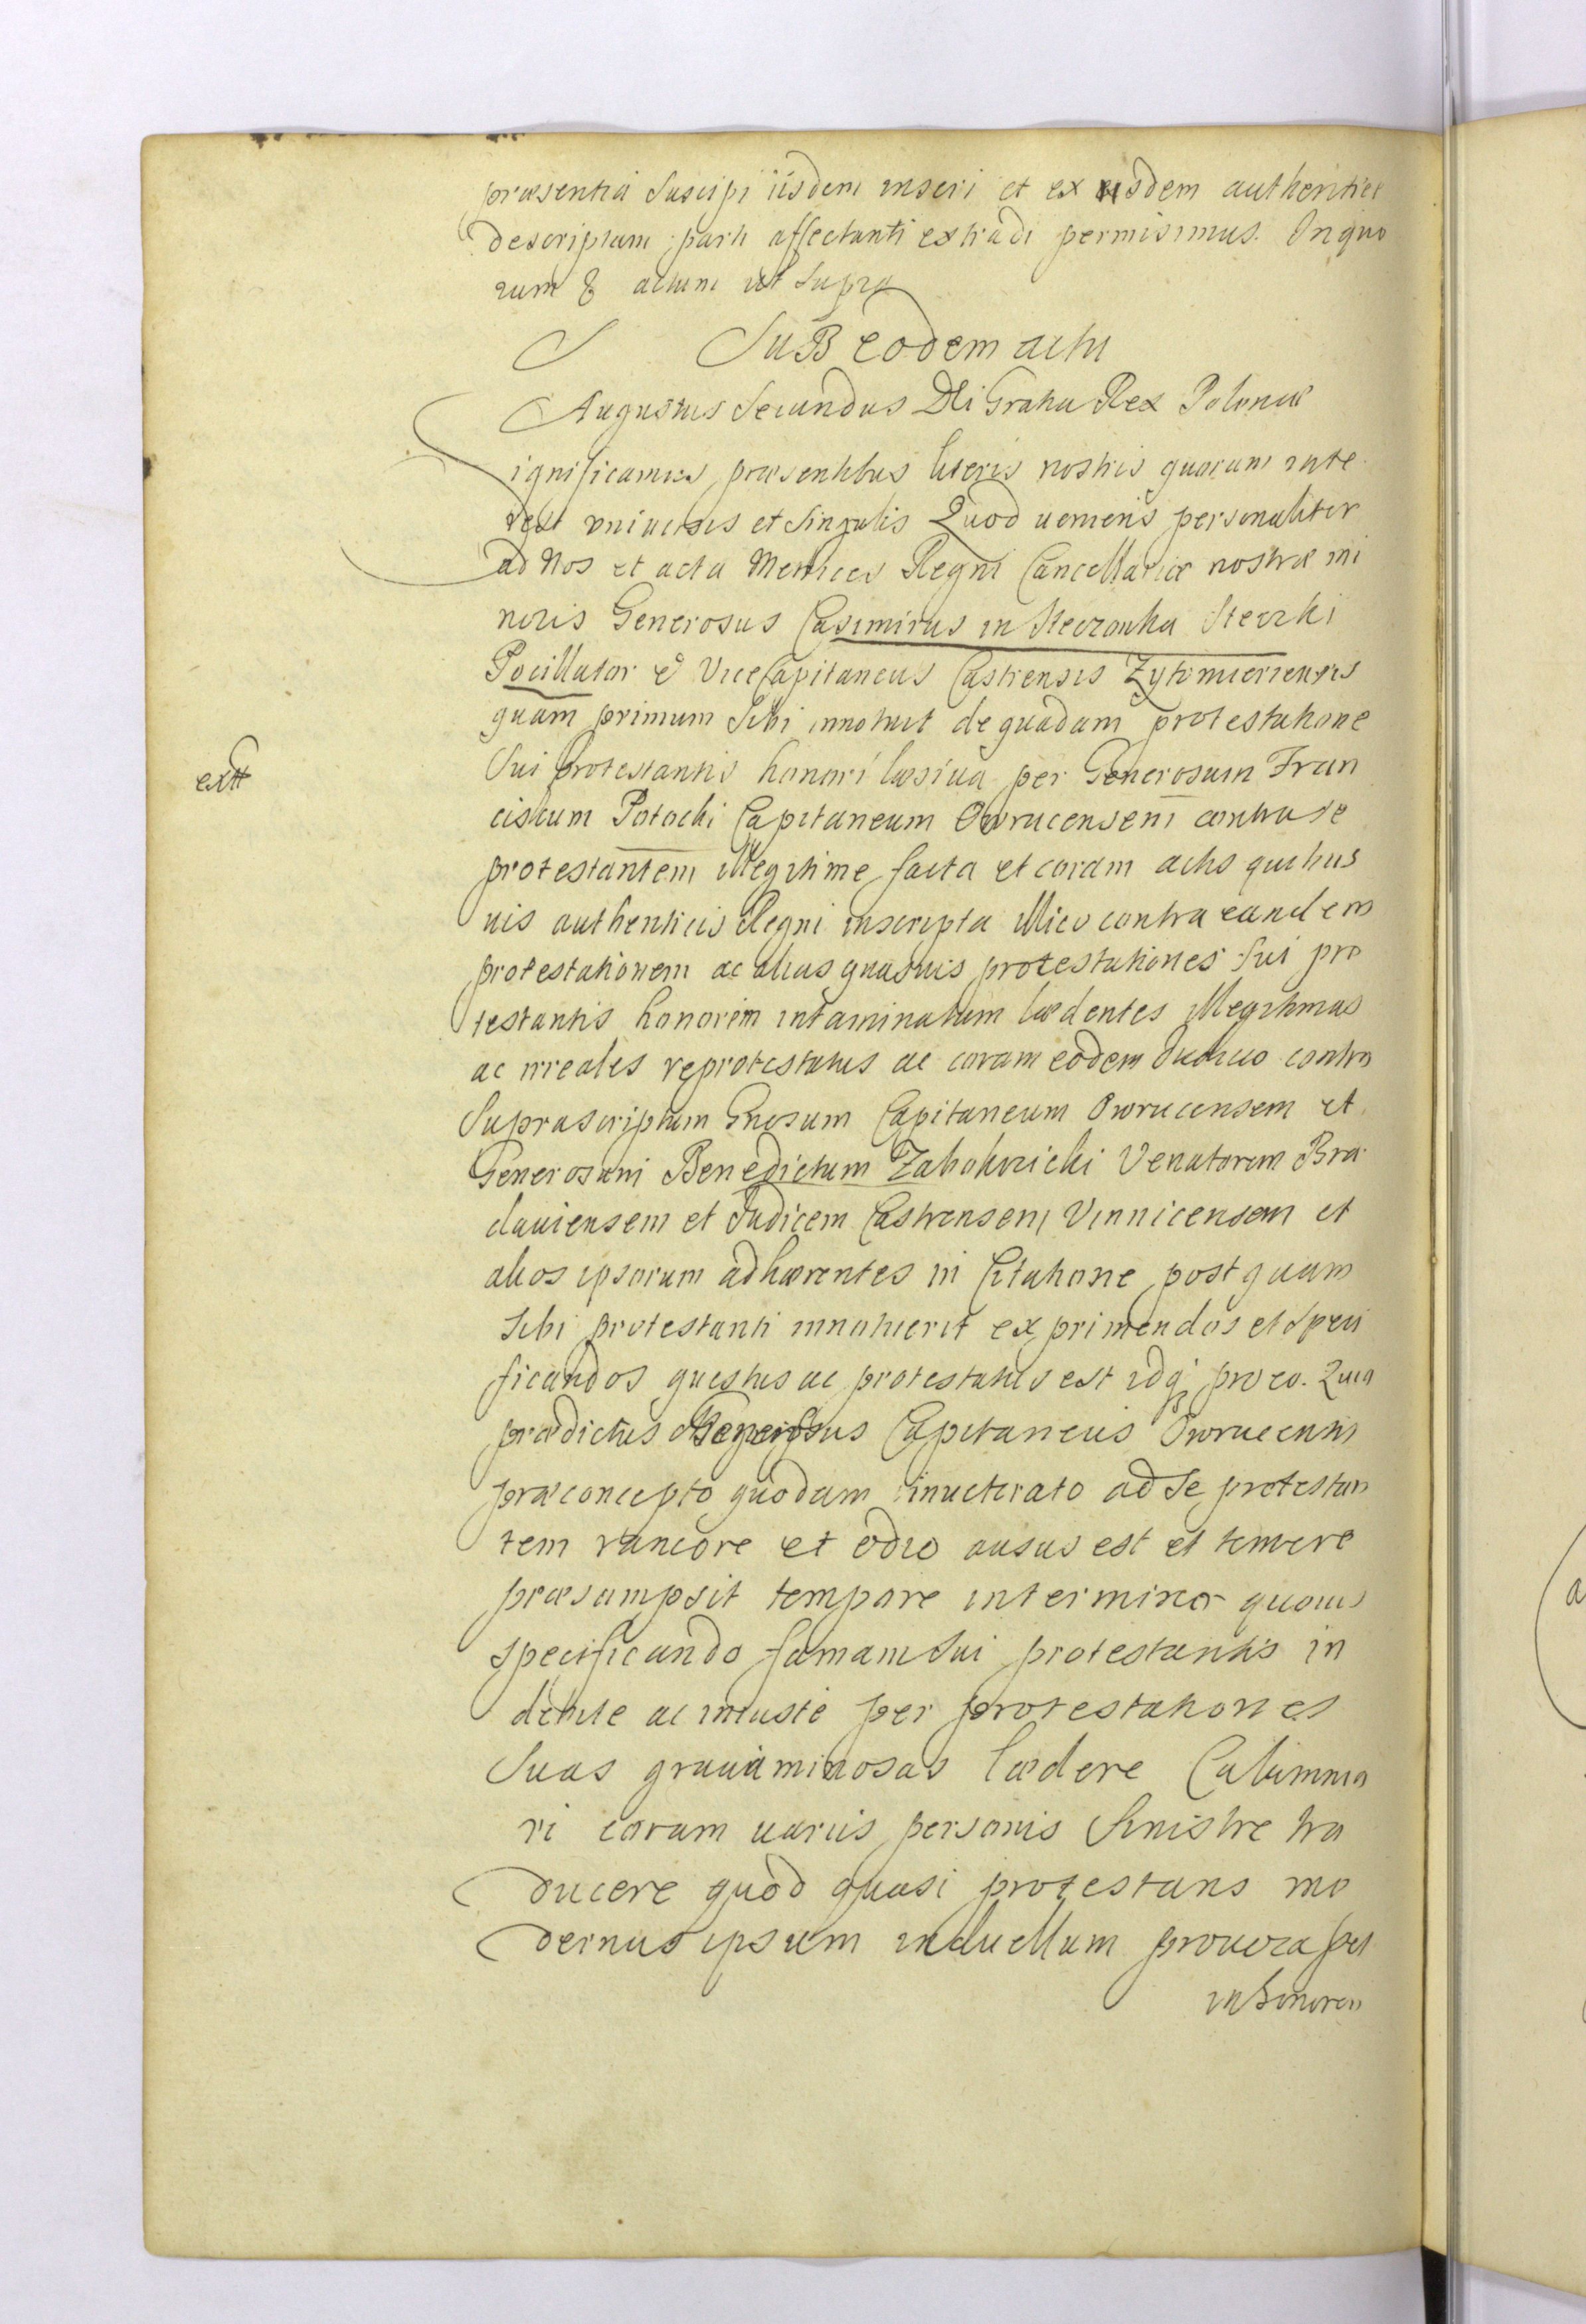 præsentia Suscipi iisdem inseri et ex iisdem authentice
descriptam parti affectanti extradi permisimus. In quo
rum & actum ut Supra
Sub eodem actu
Augustus Secundus DEi Gratia Rex Poloniæ
Significamus præsentibus literis nostris quorum inte
rest vniuersis et Singulis Quod ueniens personaliter
ad Nos et acta Metrices Regni Cancellariæ nostræ mi
noris Generosus Casimirus in Steczanka Steczki
Pocillator & ViceCapitaneus Castrensis Zytomieriensis
quam primum Sibi innotuit de quadam protestatione
Sui protestantis honori læsiua per Generosum Fran
ciscum Potocki Capitaneum Owrucensem contra se
protestantem illegitime facta et coram actis quibus
uis authenticis Regni inscripta illico contra eandem
protestationem ac alias quasuis protestationes Sui pro
testantis honorem intaminatum lædentes illegitimas
ac irreales reprotestatus ac coram eodem Iudicio contra
Suprascriptum Gnosum Capitaneum Owrucensem et
Generosum Benedictum Zabokrzicki Venatorem Bra
clauiensem et Iudicem Castrensem Vinnicensem et
alios ipsorum adhærentes in Citatione postquam
Sibi protestanti innotuerit exprimendos et Speci
ficandos questus ac protestatus est idq pro eo. Quia
prædictus Generosus Capitaneus Owrucensis
præconcepto quodam inueterato ad Se protestan
tem rancore et odio ausus est et temere
præsumpsit tempore intermixto quouis
specificando famam Sui protestantis in
debite ac iniuste per protestationes
Suas grauaminosas lædere Calumnia
ri coram uariis personis Sinistre tra
ducere quod quasi protestans mo
dernus ipsum in duellum prouocasset
in honorem
extt